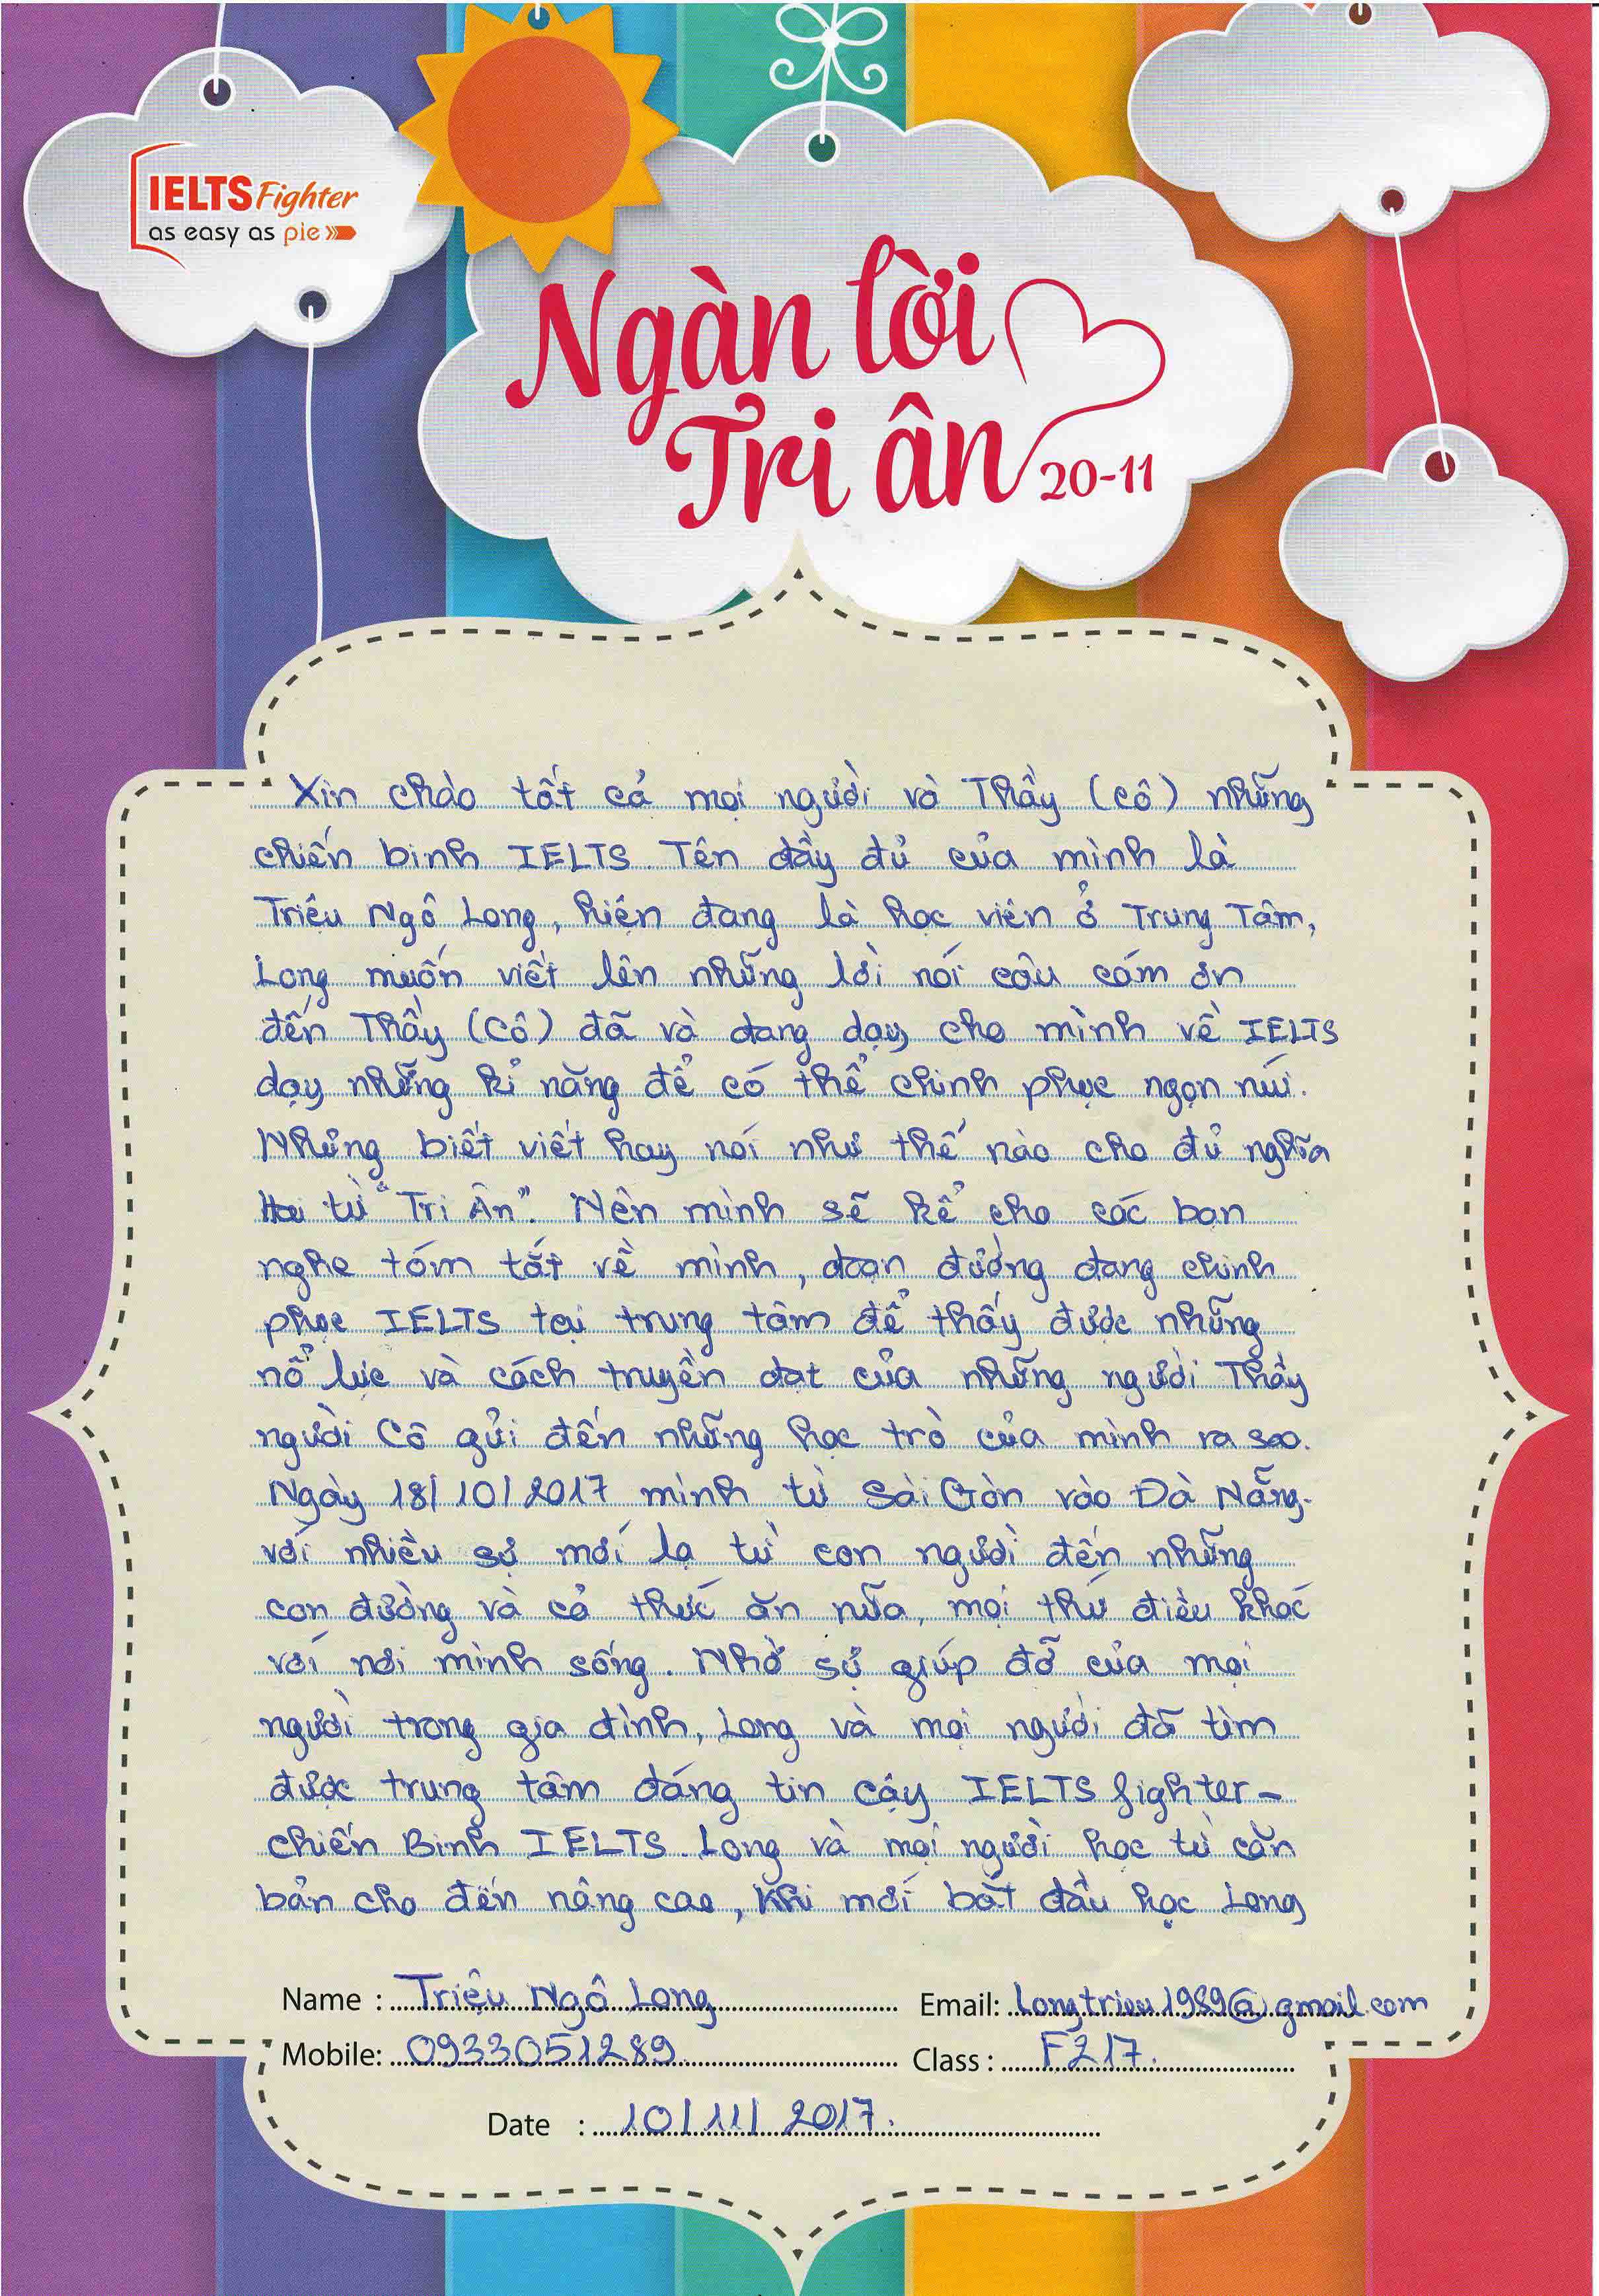 IELTS Fighter
as easy as pie
Ngàn lời
Tri ân 20-11
Xin chào tất cả mọi người và Thầy (cô) những
chiến binh IELTS. Tên đầy đủ của mình là
Triệu Ngô Long, hiện đang là học viên ở Trung Tâm,
Long muốn viết lên những lời nói câu cám ơn
đến Thầy (Cô) đã và đang dạy cho mình về IELTS
dạy những kỉ năng để có thể chinh phục ngọn núi.
Nhưng biết viết hay nói như thế nào cho đủ nghĩa
Hai từ "Tri Ân". Nên mình sẽ kể cho các bạn
nghe tóm tắt về mình, đoạn đường đang chinh
phục IELTS tại trung tâm để thấy được những
nổ lực và cách truyền đạt của những người Thầy
người Cô gửi đến những học trò của mình ra sao.
Ngày 18/10/2017 mình từ Sài Gòn vào Đà Nẵng.
với nhiều sự mới lạ từ con người đến những
con đường và cả thức ăn nữa, mọi thứ điều khác
với nơi mình sống. Nhờ sự giúp đỡ của mọi
người trong gia đình, Long và mọi người đã tìm
được trung tâm đáng tin cậy IELTS fighter -
chiến Binh IELTS. Long và mọi người học từ căn
bản cho đến nâng cao, khi mới bắt đầu học Long
Name : Triệu Ngô Long Email: Longtrieu1989@gmail.com
Mobile: 0933051289. Class : F217.
Date : 10/11/2017.